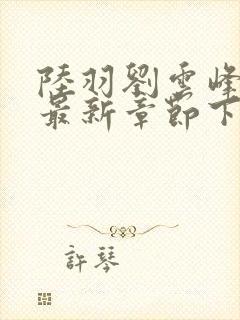 陸羽劉雲峰
最新章節下
許琴